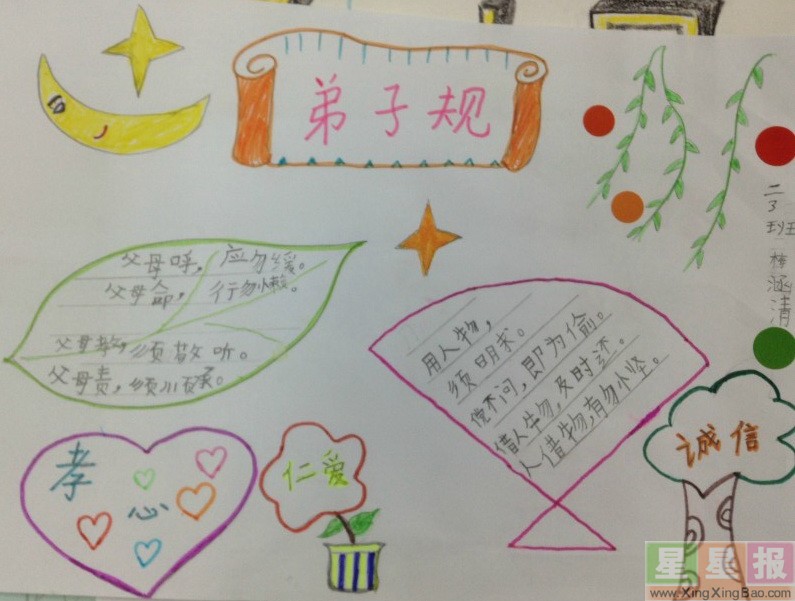 弟子规
二3班
涵清
父母呼，应勿缓。
父母命，行勿懒。
父母教，须敬听。
父母责，须顺承。
用人物，
须明求。
借不问，即为偷。
借人物，及时还。
人借物，有勿小怪。
孝心
仁爱
诚信
星星报
www.XingXingBao.com